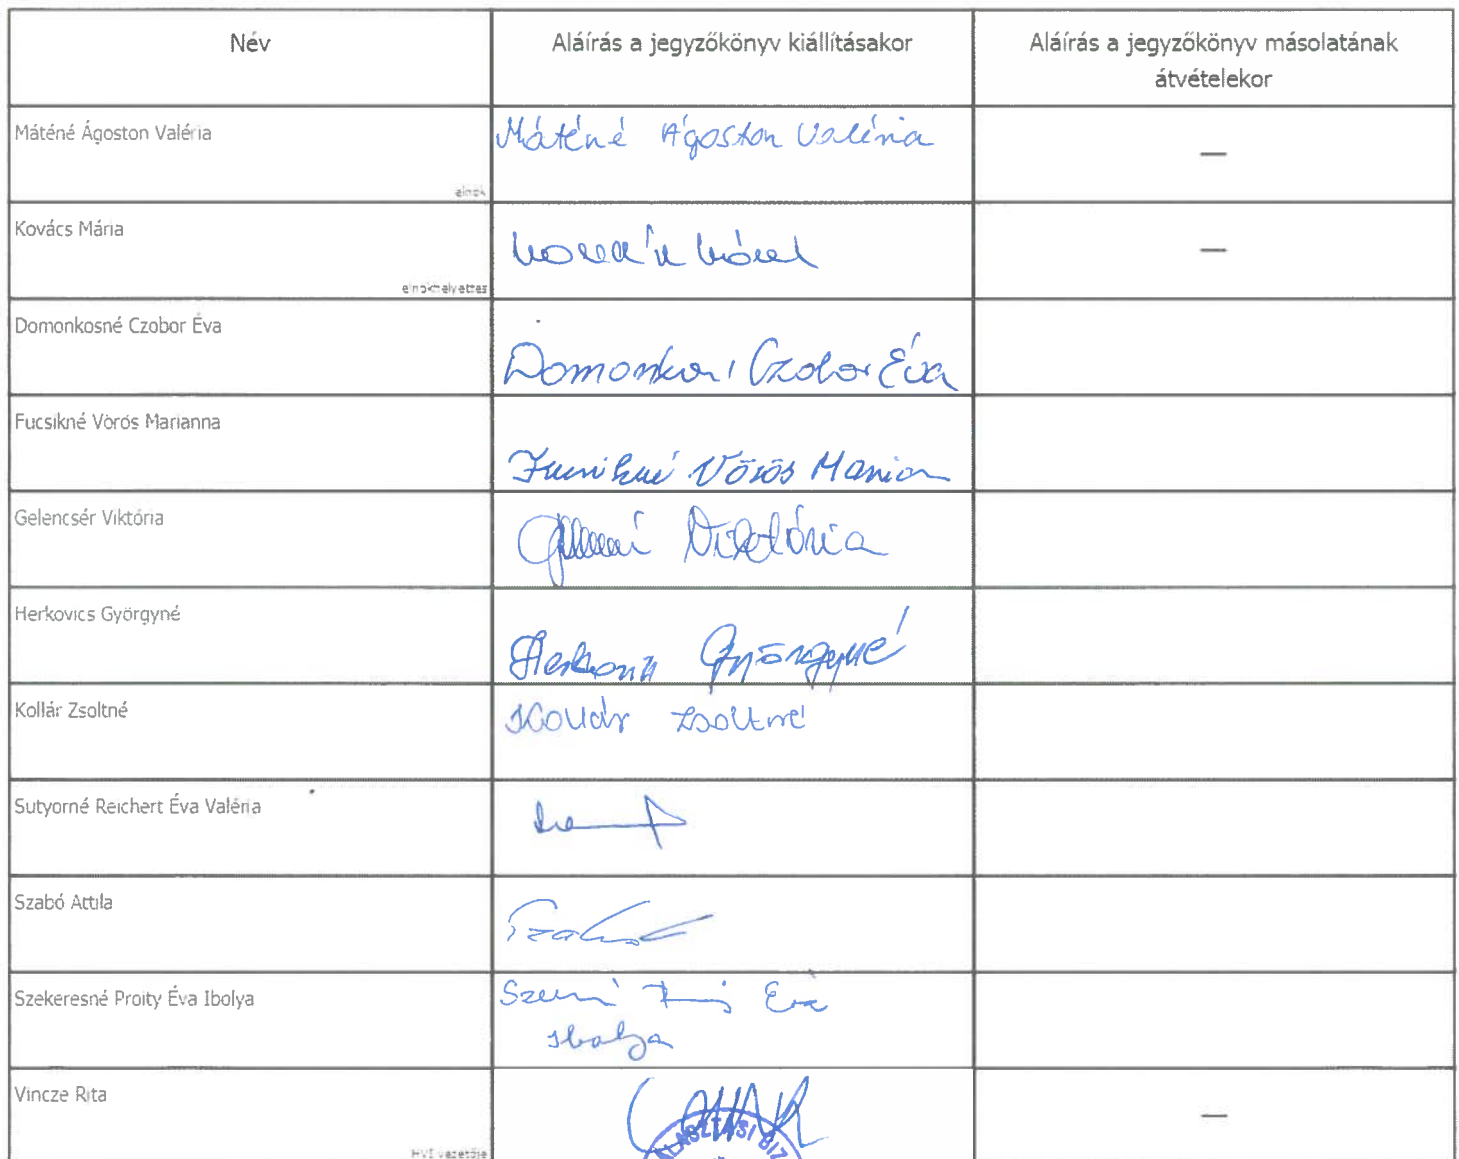 Név
Aláírás a jegyzőkönyv kiállításakor
Aláírás a jegyzőkönyv másolatának
átvételekor
Máténé Ágoston Valéria
elnök
Máténé Ágoston Valéria
—
Kovács Mária
elnökhelyettes
—
Domonkosné Czobor Éva
Czobor Éva
Fucsikné Vörös Marianna
Vörös
Gelencsér Viktória
Viktória
Herkovics Györgyné
Györgyné
Kollár Zsoltné
Kollár Zsoltné
Sutyorné Reichert Éva Valéria
Szabó Attila
Szabó
Szekeresné Proity Éva Ibolya
Éva
Ibolya
Vincze Rita
HVI vezetője
—